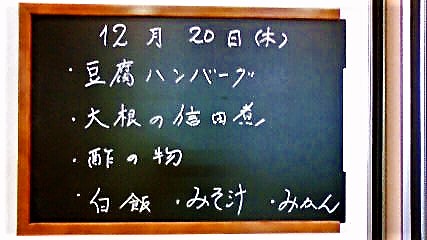 12月 20日(木)
・豆腐ハンバーグ
・大根の信田煮
・酢の物
・白飯 ・みそ汁 ・みかん